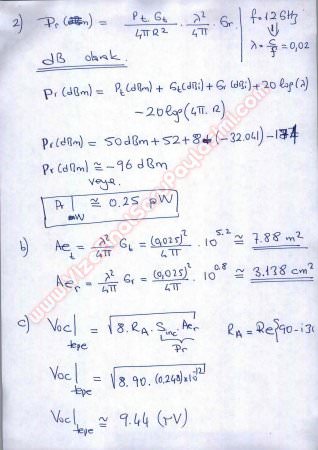 2) Pr(dBm) = Pt Gt / 4πR² · λ² / 4π · Gr
f=12 GHz
λ = c/f = 0,02
dB olarak
Pr(dBm) = Pt(dBm) + Gt(dBi) + Gr(dBi) + 20 log(λ)
- 20 log(4π.R)
Pr(dBm) = 50 dBm + 52 + 8 + (-32.041) - 174
Pr(dBm) ≅ -96 dBm
veya
≅ 0.25 pW
b) Ae_t = λ²/4π Gt = (0,025)²/4π · 10^5.2 ≅ 7.88 m²
Ae_r = λ²/4π Gr = (0,025)²/4π · 10^0.8 ≅ 3.138 cm²
c) Voc|tepe = √8.R_A.S_inc.Aer
Pr
R_A = Re{90-j3
Voc|tepe = √8.90.(0,248)x10^-12
Voc|tepe ≅ 9.44 (μV)
www.VizeFinalSoruPaylasimi.com